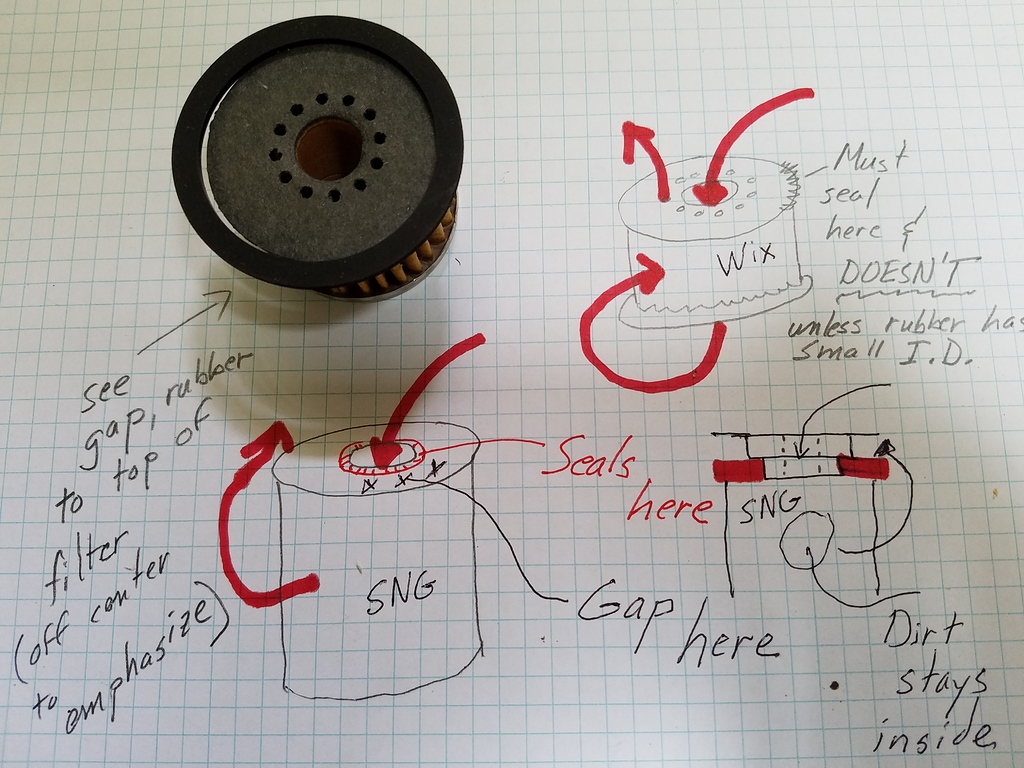 Must
seal
here &
DOESN'T
unless rubber has
small I.D.
Wix
see
gap, rubber
to top of
filter
(off center
to emphasize)
Seals
here
SNG
Gap
here
SNG
Dirt
stays
inside